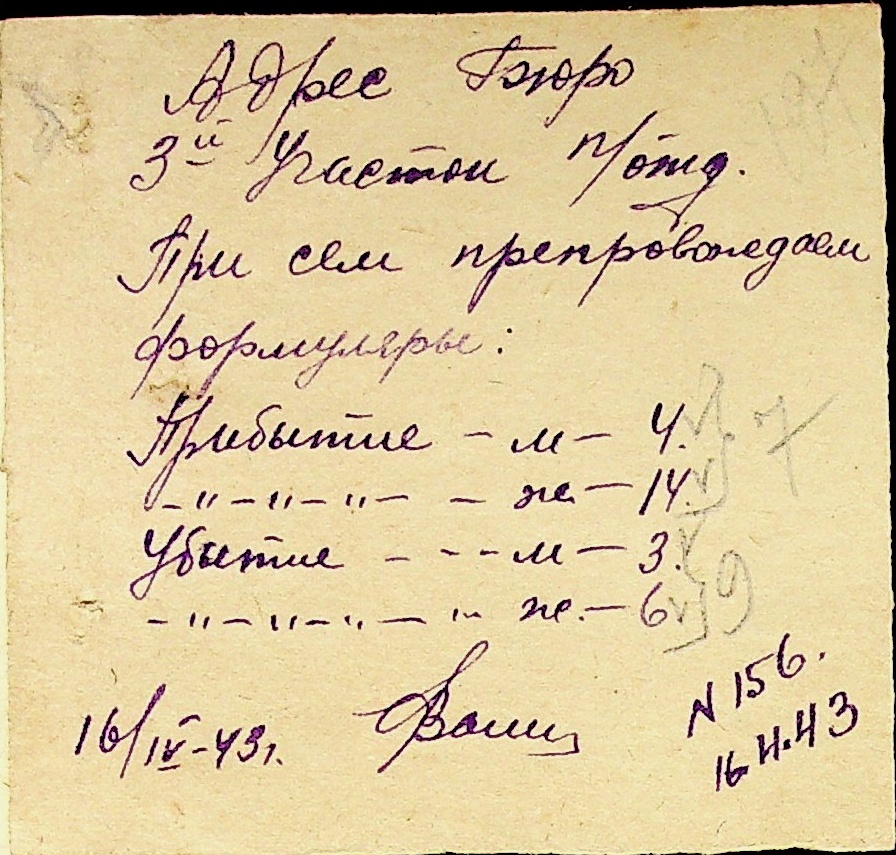 Адрес Бюро
3й Участок п/отд.
При сем препровождаем
формуляры:
Прибытие - м - 4.
- " - " - " - - ж. - 14.
Убытие - - - м - 3.
- " - " - " - " ж. - 6
7
9
16/IV-43г.
N 156.
16.4.43